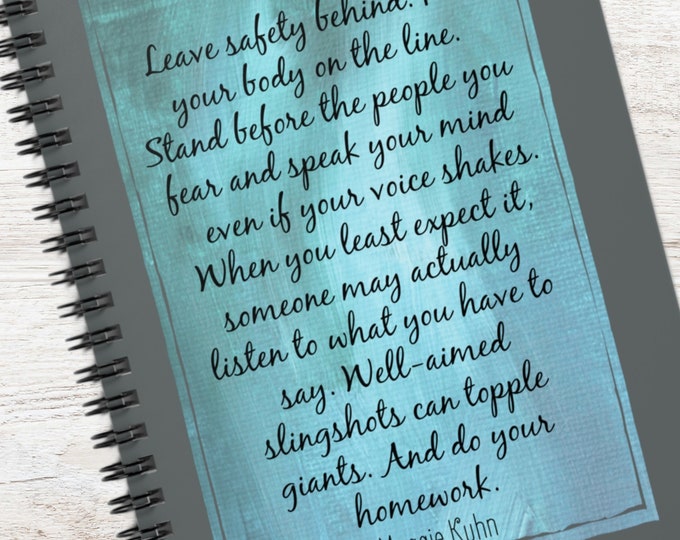 Leave safety behind.
your body on the line.
Stand before the people you
fear and speak your mind
even if your voice shakes.
When you least expect it,
someone may actually
listen to what you have to
say. Well-aimed
slingshots can topple
giants. And do your
homework.
Maggie Kuhn